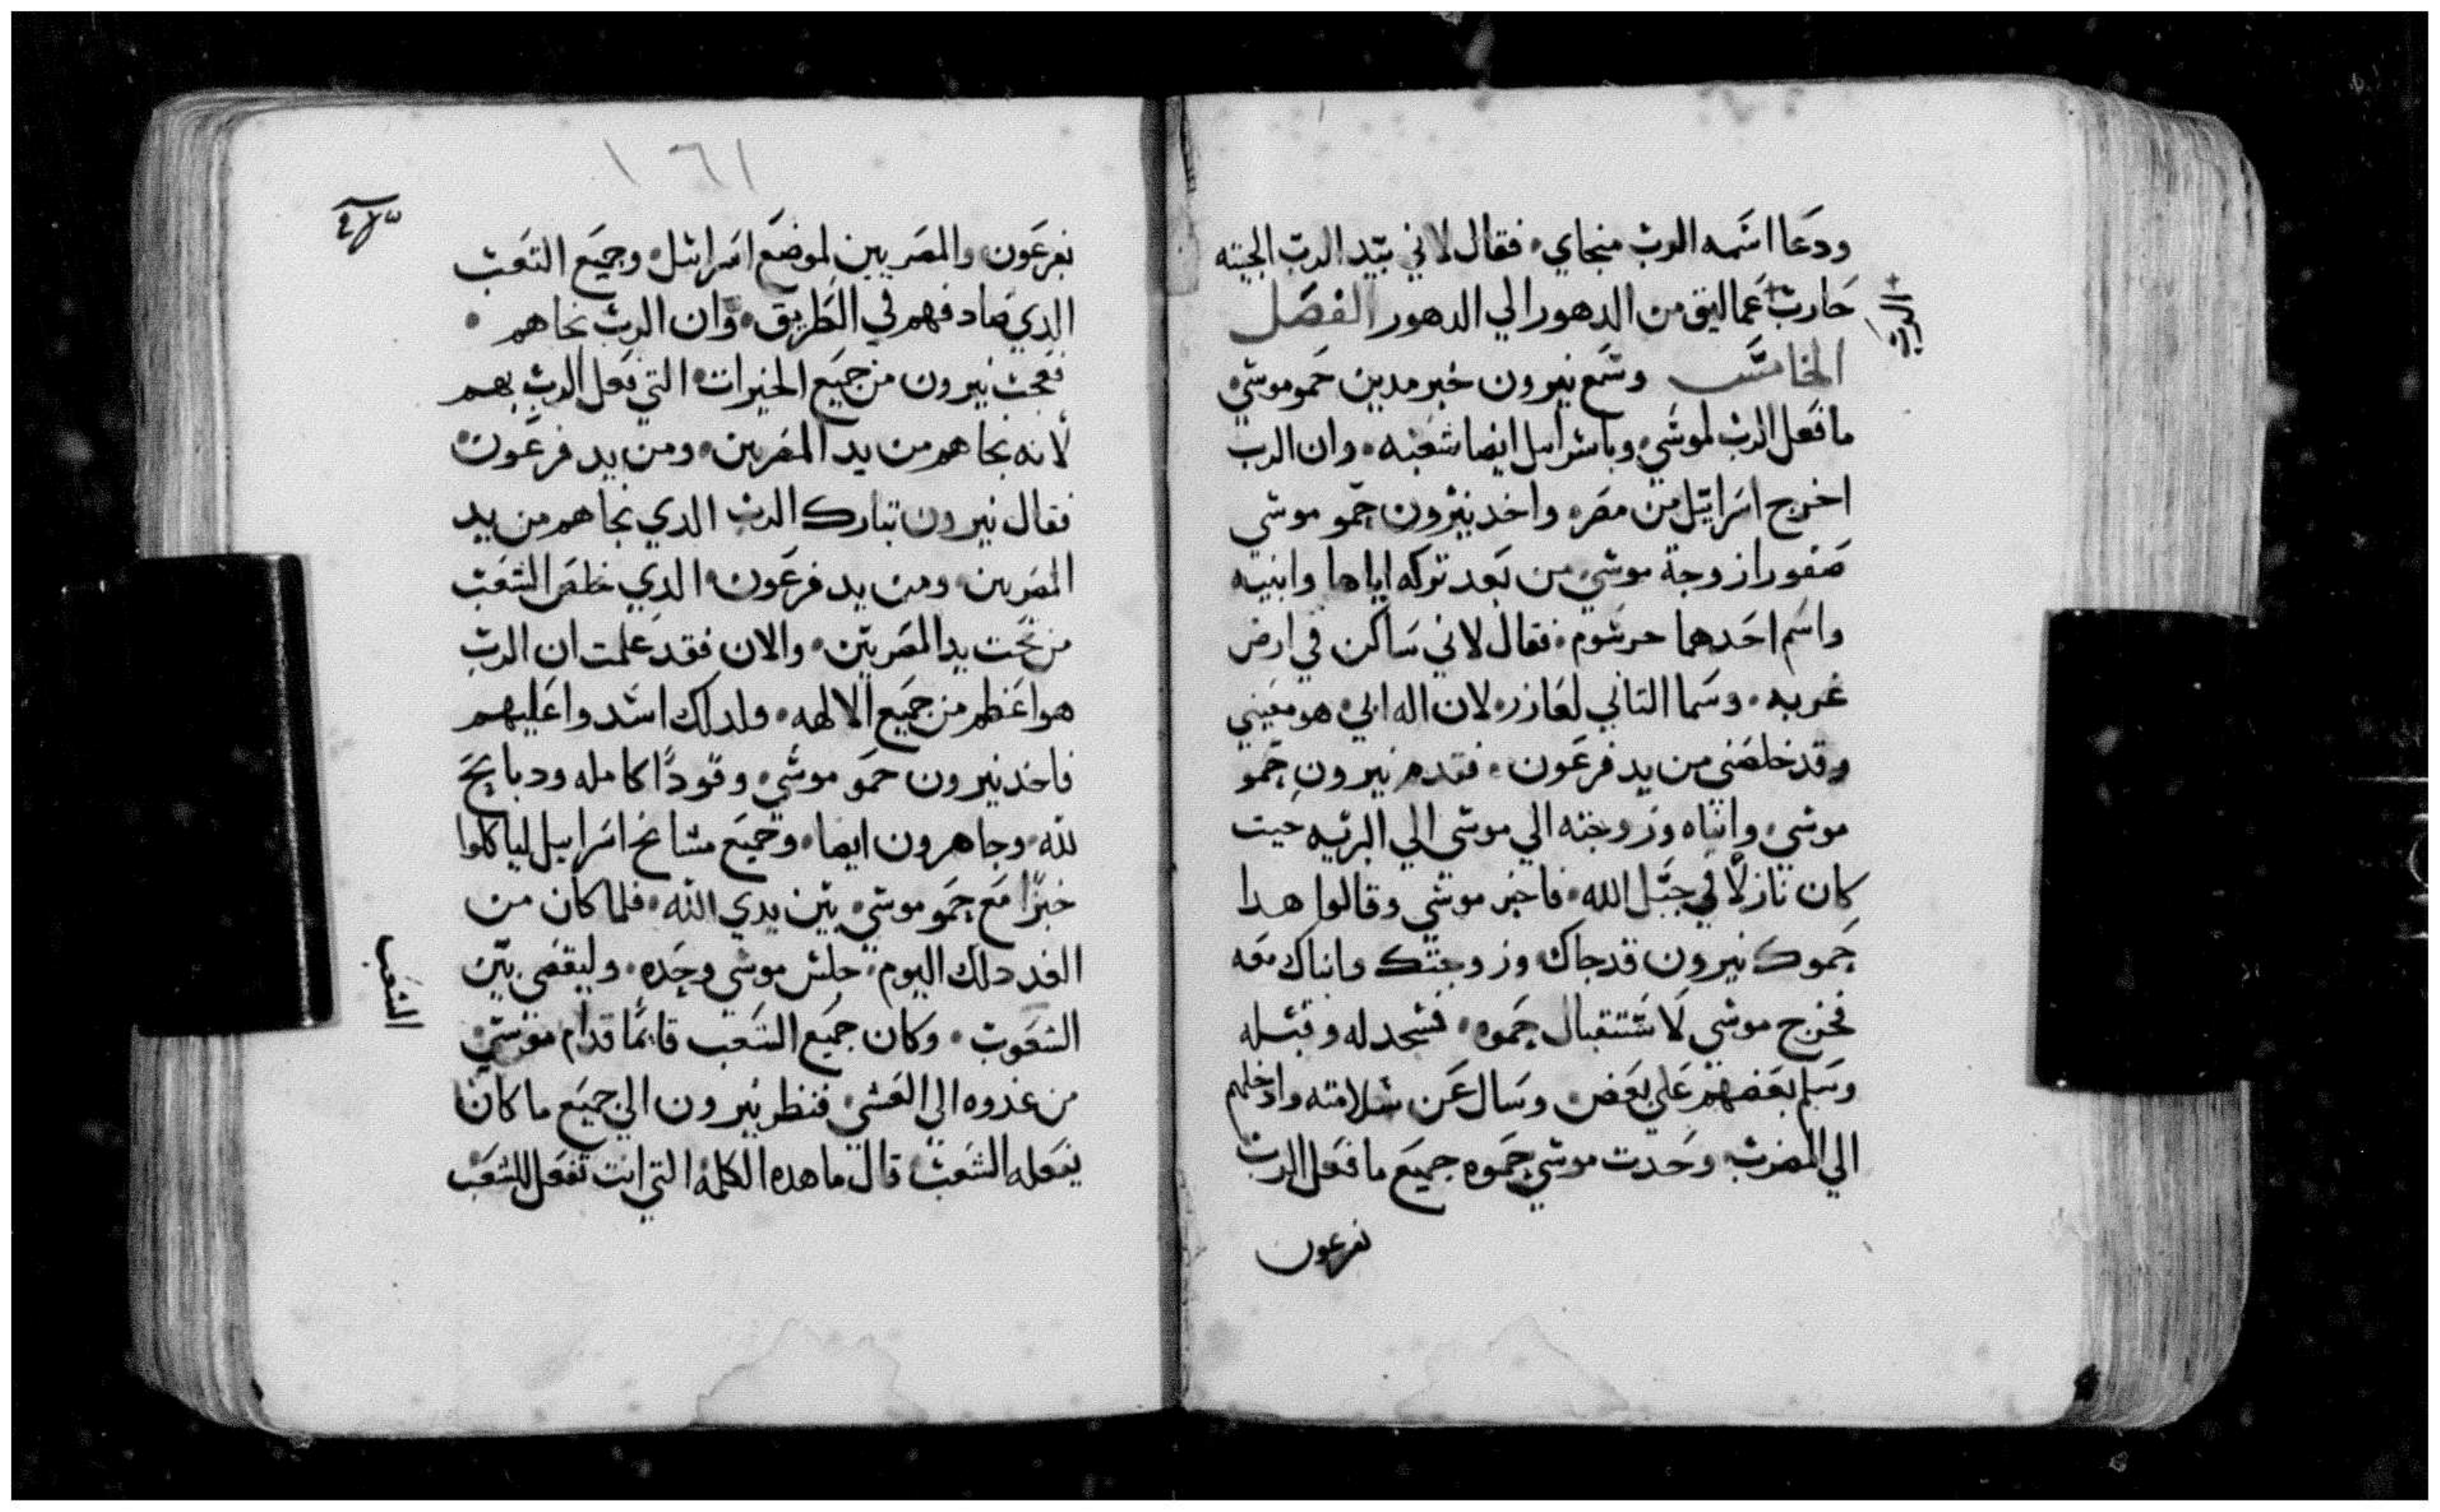 ودعا اسمه الرب منجاي، فقال لاني بيد الرب الخبيه
حارب عماليق من الدهور الي الدهور الفصل
الرب
الخامس وسمع نيرون خبر مدين حمو موسي
ما فعل الرب لموسي وباسرايل ايضا شعبه، وان الرب
اخرج اسرايل من مصر، واخد نيرون حمو موسي
صفورا زوجة موسي من بعد تركه اياها وابنيه
واسم احدهما حرسوم، فقال لاني ساكن في ارض
غربه، وسما التاني لعازر، لان اله ابي هو معيني
وقد خلصني من يد فرعون، فتقدم نيرون حمو
موسي وابناه وزوجته الي موسي الي البريه حيت
كان نازلاً في جبل الله، فاخبر موسي وقالوا هدا
حموك نيرون قد جاك وزوجتك وابناك معه
فخرج موسي لاستتقبال حموه، فسجد له وقبله
وسلم بعضهم علي بعض، وسال عن سلامته وادخلهم
الي المضرب وحدت موسي حموه جميع ما فعل الرب
نفرعون
١٦١
بفرعون والمصريين لموضع اسرايل، وجميع التعب
الدي صادفهم في الطريق، وان الرب نجاهم،
فعجب نيرون من جميع الخيرات التي فعل الرب بهم
لانه نجاهم من يد المصريين، ومن يد فرعون
فقال نيرون تبارك الرب الدي نجاهم من يد
المصريين، ومن يد فرعون، الدي خلص الشعب
من تحت يد المصريين، والان فقد علمت ان الرب
هو اعظم من جميع الالهه، ولدلك اشدوا عليهم
فاخد نيرون حمو موسي، وقوداً كامله ودبايح
لله، وجا هرون ايضا، وجميع مشايخ اسرايل لياكلوا
خبزاً مع حمو موسي، بين يدي الله، فلما كان من
الغد دلك اليوم، جلس موسي وحده، وليقضي بين
الشعوب، وكان جميع الشعب قايماً قدام موسي
من غدوه الي العشي، فنظر نيرون الي جميع ما كان
يفعله الشعب، قال ما هده الكلمه التي انت تفعل للشعب
الشعب